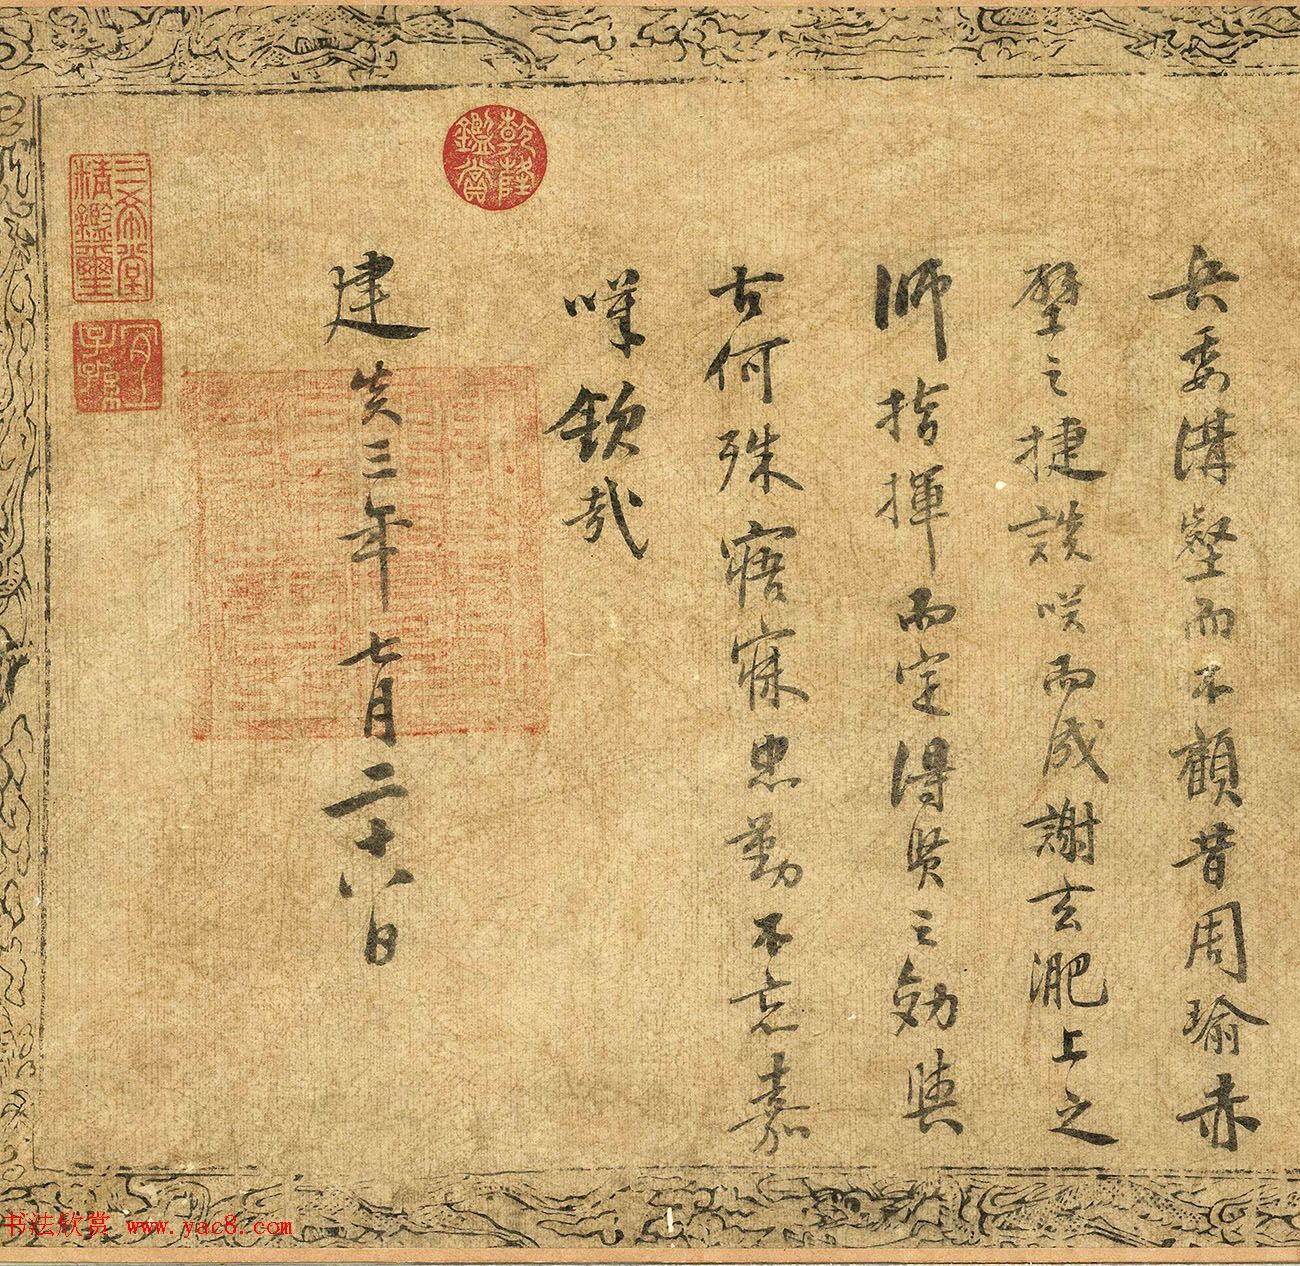 兵委溝壑而不顧昔周瑜赤
壁之捷談咲而成謝玄淝上之
師指揮而定得賢之効與
古何殊寤寐忠勤不忘嘉
嘆欽哉
建炎三年七月二十八日
乾隆
鑑賞
三希堂
精鑑璽
宜
子孫
书法欣赏 www.yac8.com